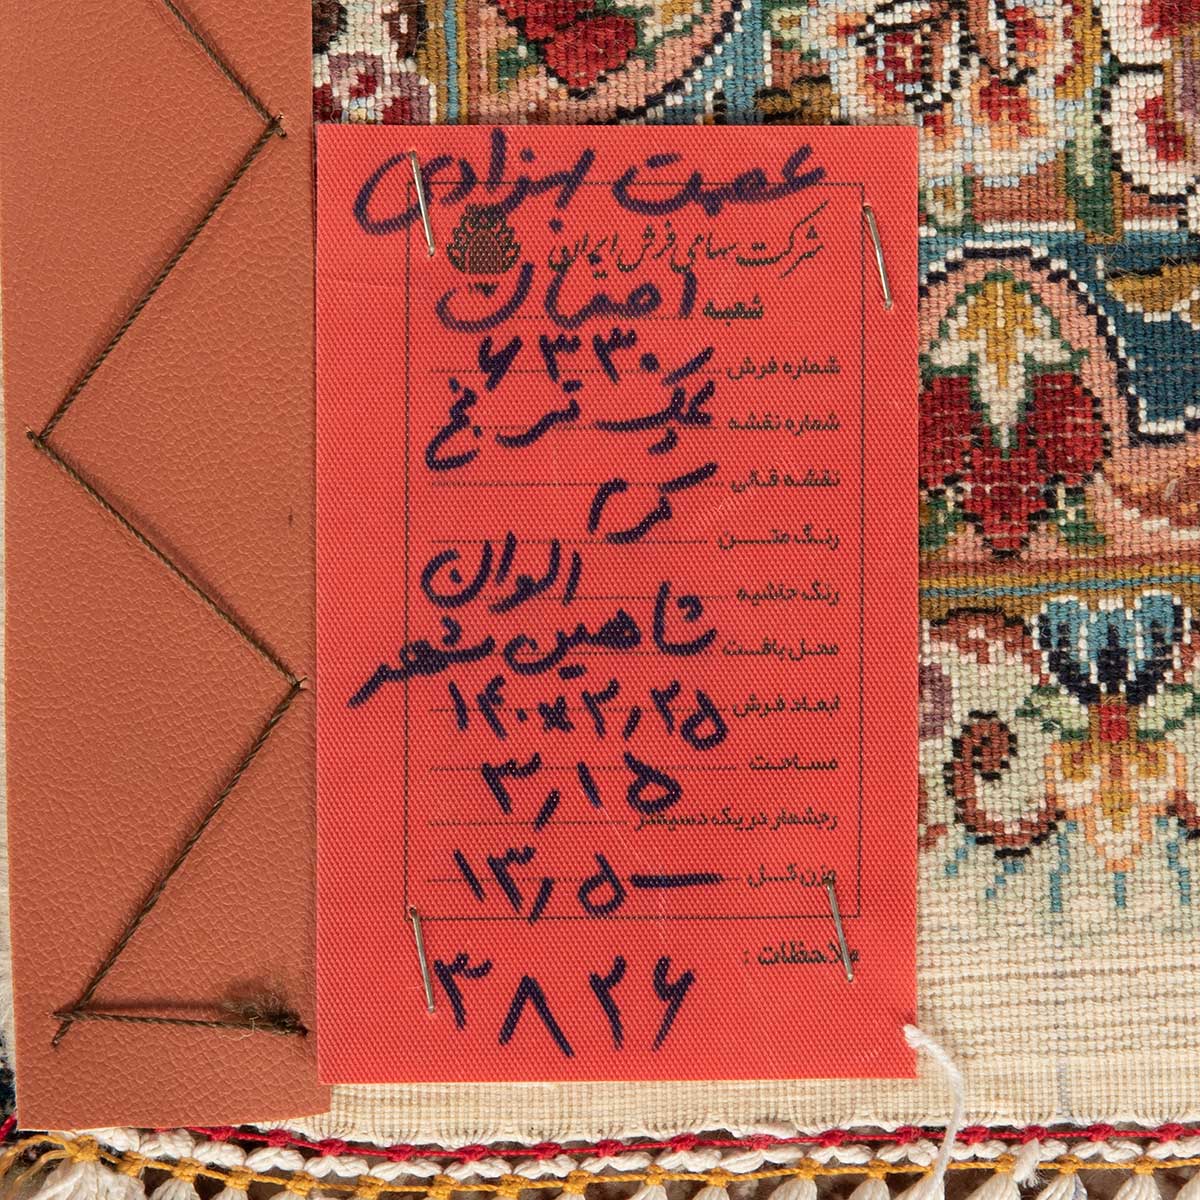 عصمت ابزادی
شرکت سهامی فرش ایران
شعبه اصفهان
شماره فرش ۶۳۳۰
شماره نقشه تک ترنج
نقشه قالی
رنگ متن کرم
رنگ حاشیه الوان
محل بافت شاهین شهر
ابعاد فرش ۱۴۰×۲٫۲۵
مساحت ۳٫۱۵
رجشمار در یک دسیمتر
وزن کل ۱۳٫۵۰۰
ملاحظات :
۳۸۲۶